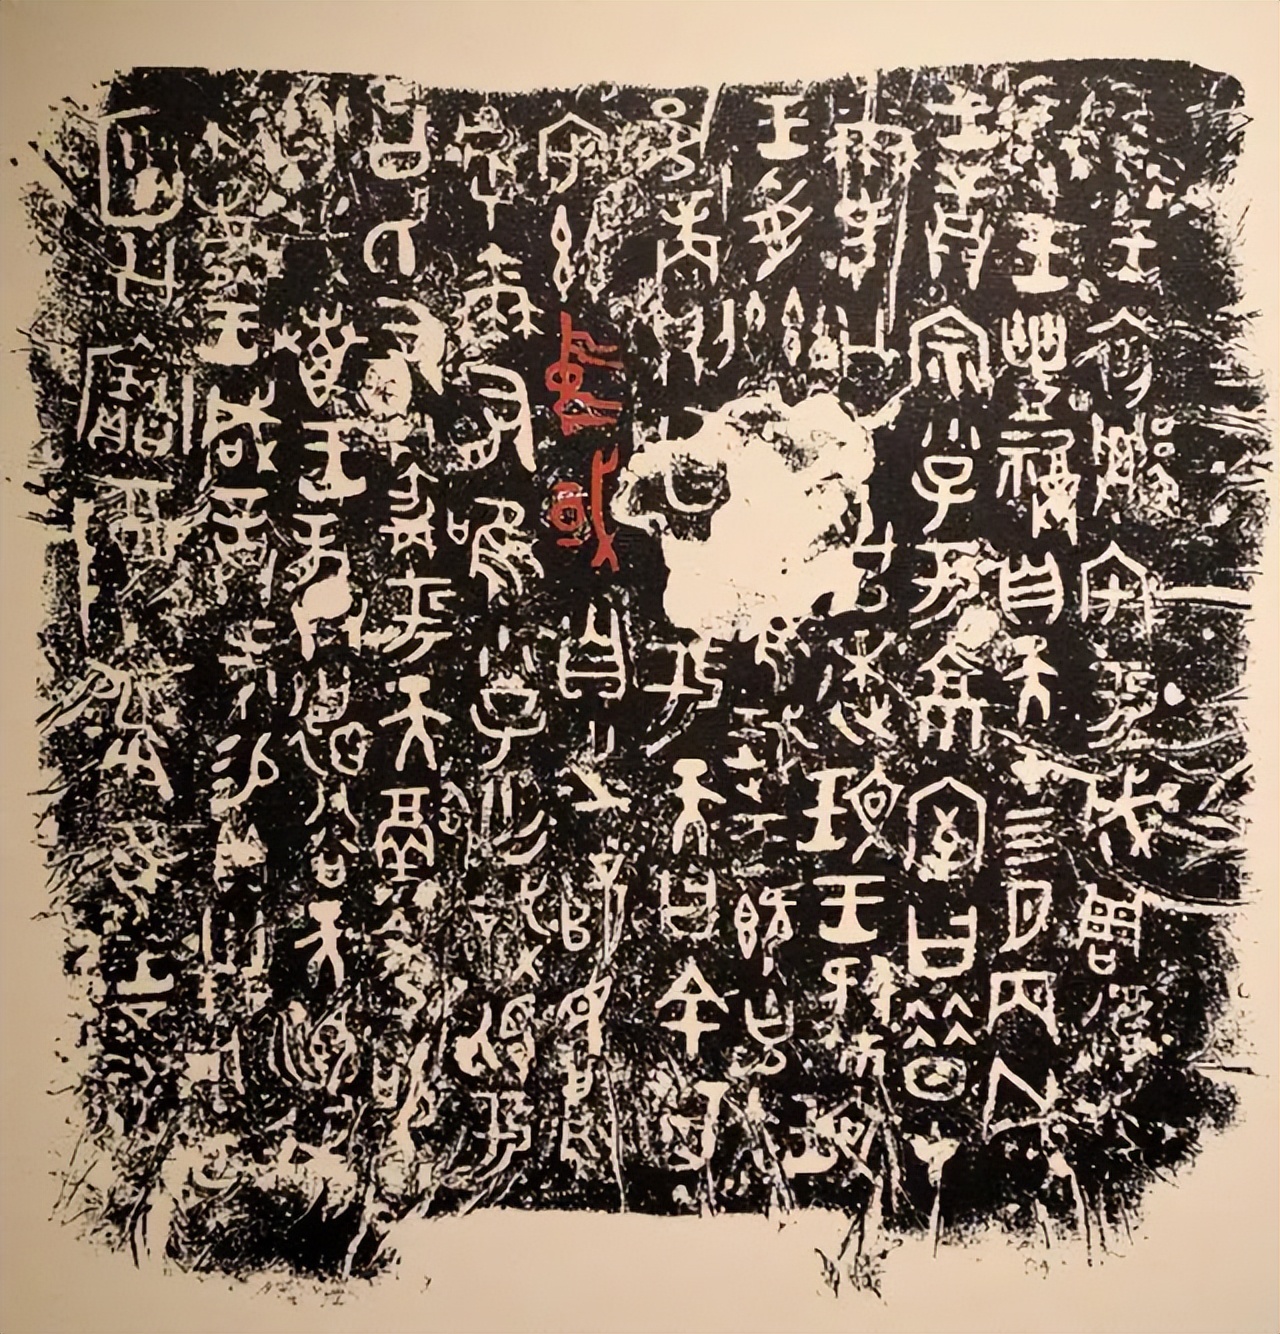 王初遷宅于成周
王豊福自天在四月丙戌
王誥宗小子于京室曰昔在
爾考公氏克逨玟王肆玟
王受茲王既克大
邑商廷告于天曰余其
宅茲中或自之乂民嗚
呼爾有唯小子亡識視于
公氏有于天徹令敬
享哉叀王恭德裕天訓我
不敏王咸誥何賜貝卅朋用作
公寶尊彝唯王五祀